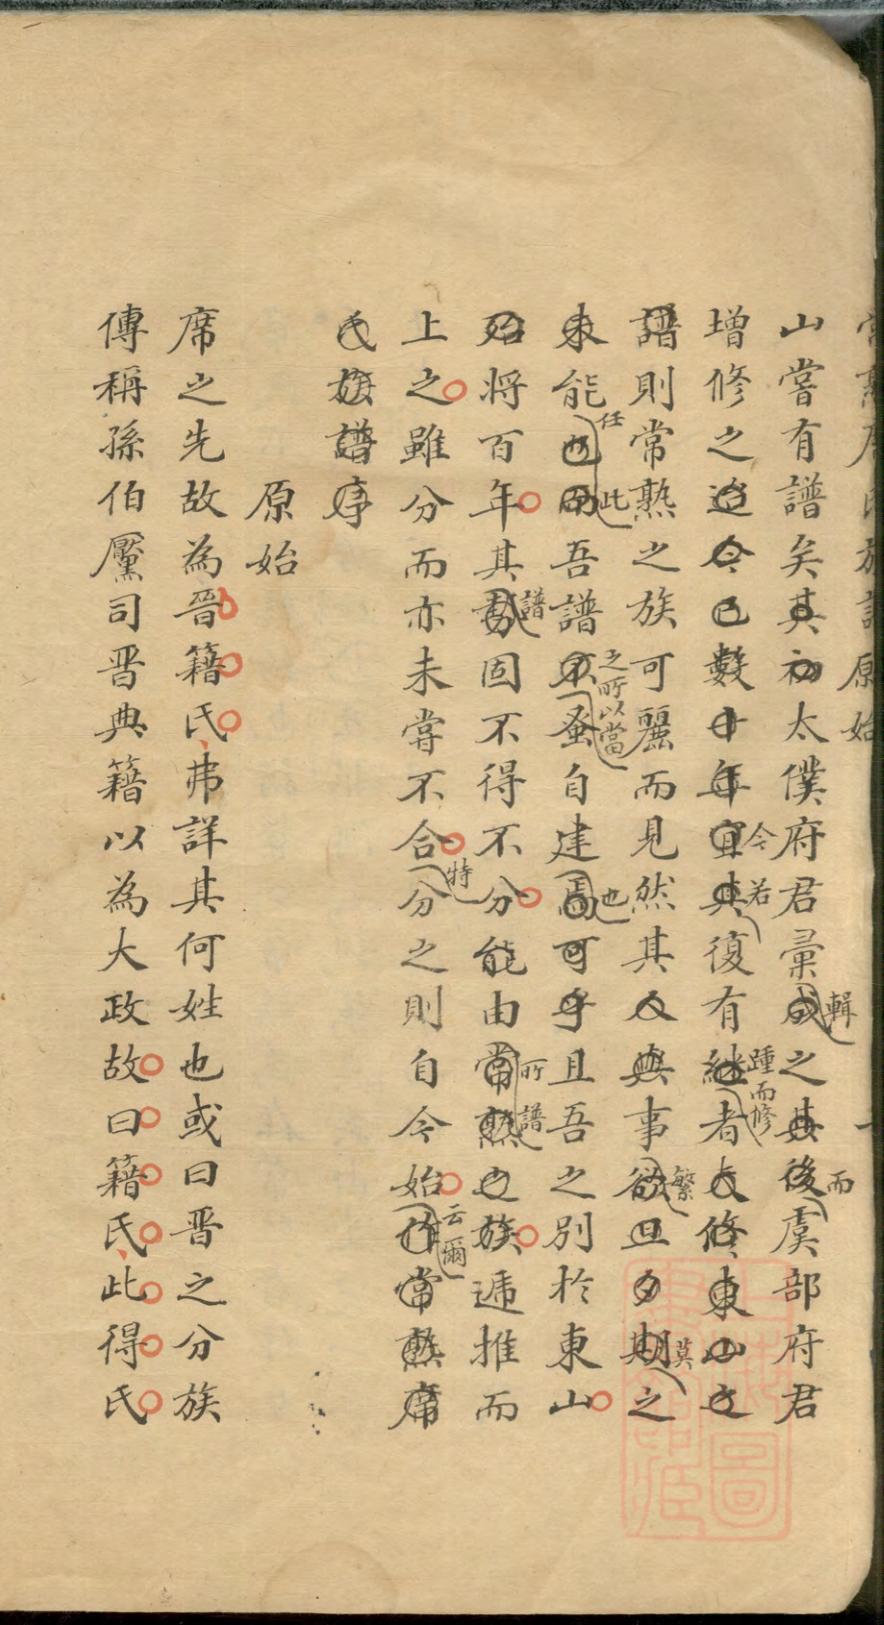 山嘗有譜矣其初太僕府君彙成之其後虞部府君
輯
而
增修之迨今已數十年宜其復有継者大修東山之
今若
踵而修
譜則常熟之族可麗而見然其人與事欲旦夕期之
繁
莫
未能也而吾譜蚤自建焉可乎且吾之別於東山
任此
之所以當
也
始將百年其勢固不得不分能由常熟之族遞推而
譜
所譜
上之雖分而亦未嘗不合分之則自今始作常熟席
特
云爾
氏族譜序
原始
席之先故為晉籍氏弗詳其何姓也或曰晋之分族
傳稱孫伯黶司晋典籍以為大政故曰籍氏此得氏